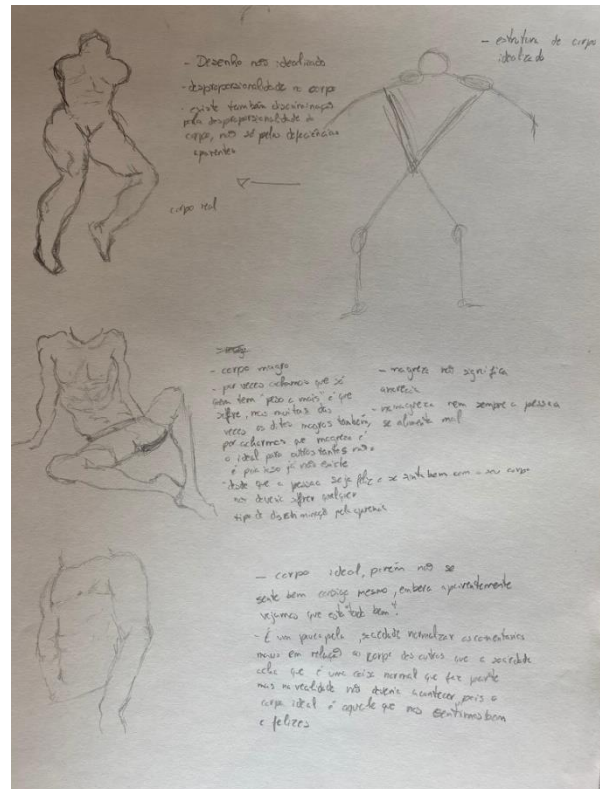 - Desenho não idealizado
- desproporsionalidade do corpo
- existe também discriminação
pela desproporsionalidade do
corpo, não só pelas deficiências
aparentes
corpo real
- estrutura do corpo
idealizado
- corpo magro
- por vezes achamos que só
quem tem "peso a mais" é que
sofre, mas muitas das
vezes os ditos magros também,
por acharmos que magreza é
o ideal para outros tantos não
é por isso já não existe
desde que a pessoa seja feliz e se sinta bem com o seu corpo
não deveria sofrer qualquer
tipo de discriminação pela aparência
- magreza não significa
anorexia
- na magreza nem sempre a pessoa
se alimenta mal
- corpo ideal, porém não se
sente bem consigo mesmo, embora aparentemente
vejamos que está "tudo bem".
- É um pouco pela sociedade normalizar os comentários
maus em relação ao corpo dos outros que a sociedade
acha que é uma coisa normal que faz parte
mas na realidade não deveria acontecer pois o
corpo ideal é aquele que nos sentimos bem
e felizes